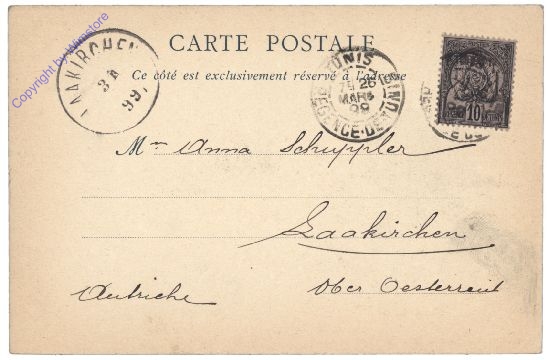 Copyright by Winstore
LAAKIRCHEN
3 4
99
CARTE POSTALE
Ce côté est exclusivement réservé à l'adresse
TUNIS
26
MARS
99
REGENCE DE TUNIS
10
Mme Anna Schuppler
Laakirchen
Autriche Ober Oesterreich